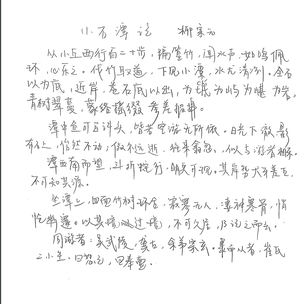 小石潭记 柳宗元
从小丘西行百二十步，隔篁竹，闻水声，如鸣佩
环，心乐之。伐竹取道，下见小潭，水尤清冽。全石
以为底，近岸，卷石底以出，为坻为屿为嵁为岩。
青树翠蔓，蒙络摇缀，参差披拂。
潭中鱼可百许头，皆若空游无所依。日光下澈，影
布石上，佁然不动；俶尔远逝，往来翕忽，似与游者相乐。
潭西南而望，斗折蛇行，明灭可见。其岸势犬牙差互，
不可知其源。
坐潭上，四面竹树环合，寂寥无人，凄神寒骨，悄
怆幽邃。以其境过清，不可久居，乃记之而去。
同游者：吴武陵，龚古，余弟宗玄。隶而从者，崔氏
二小生，曰恕己，曰奉壹。